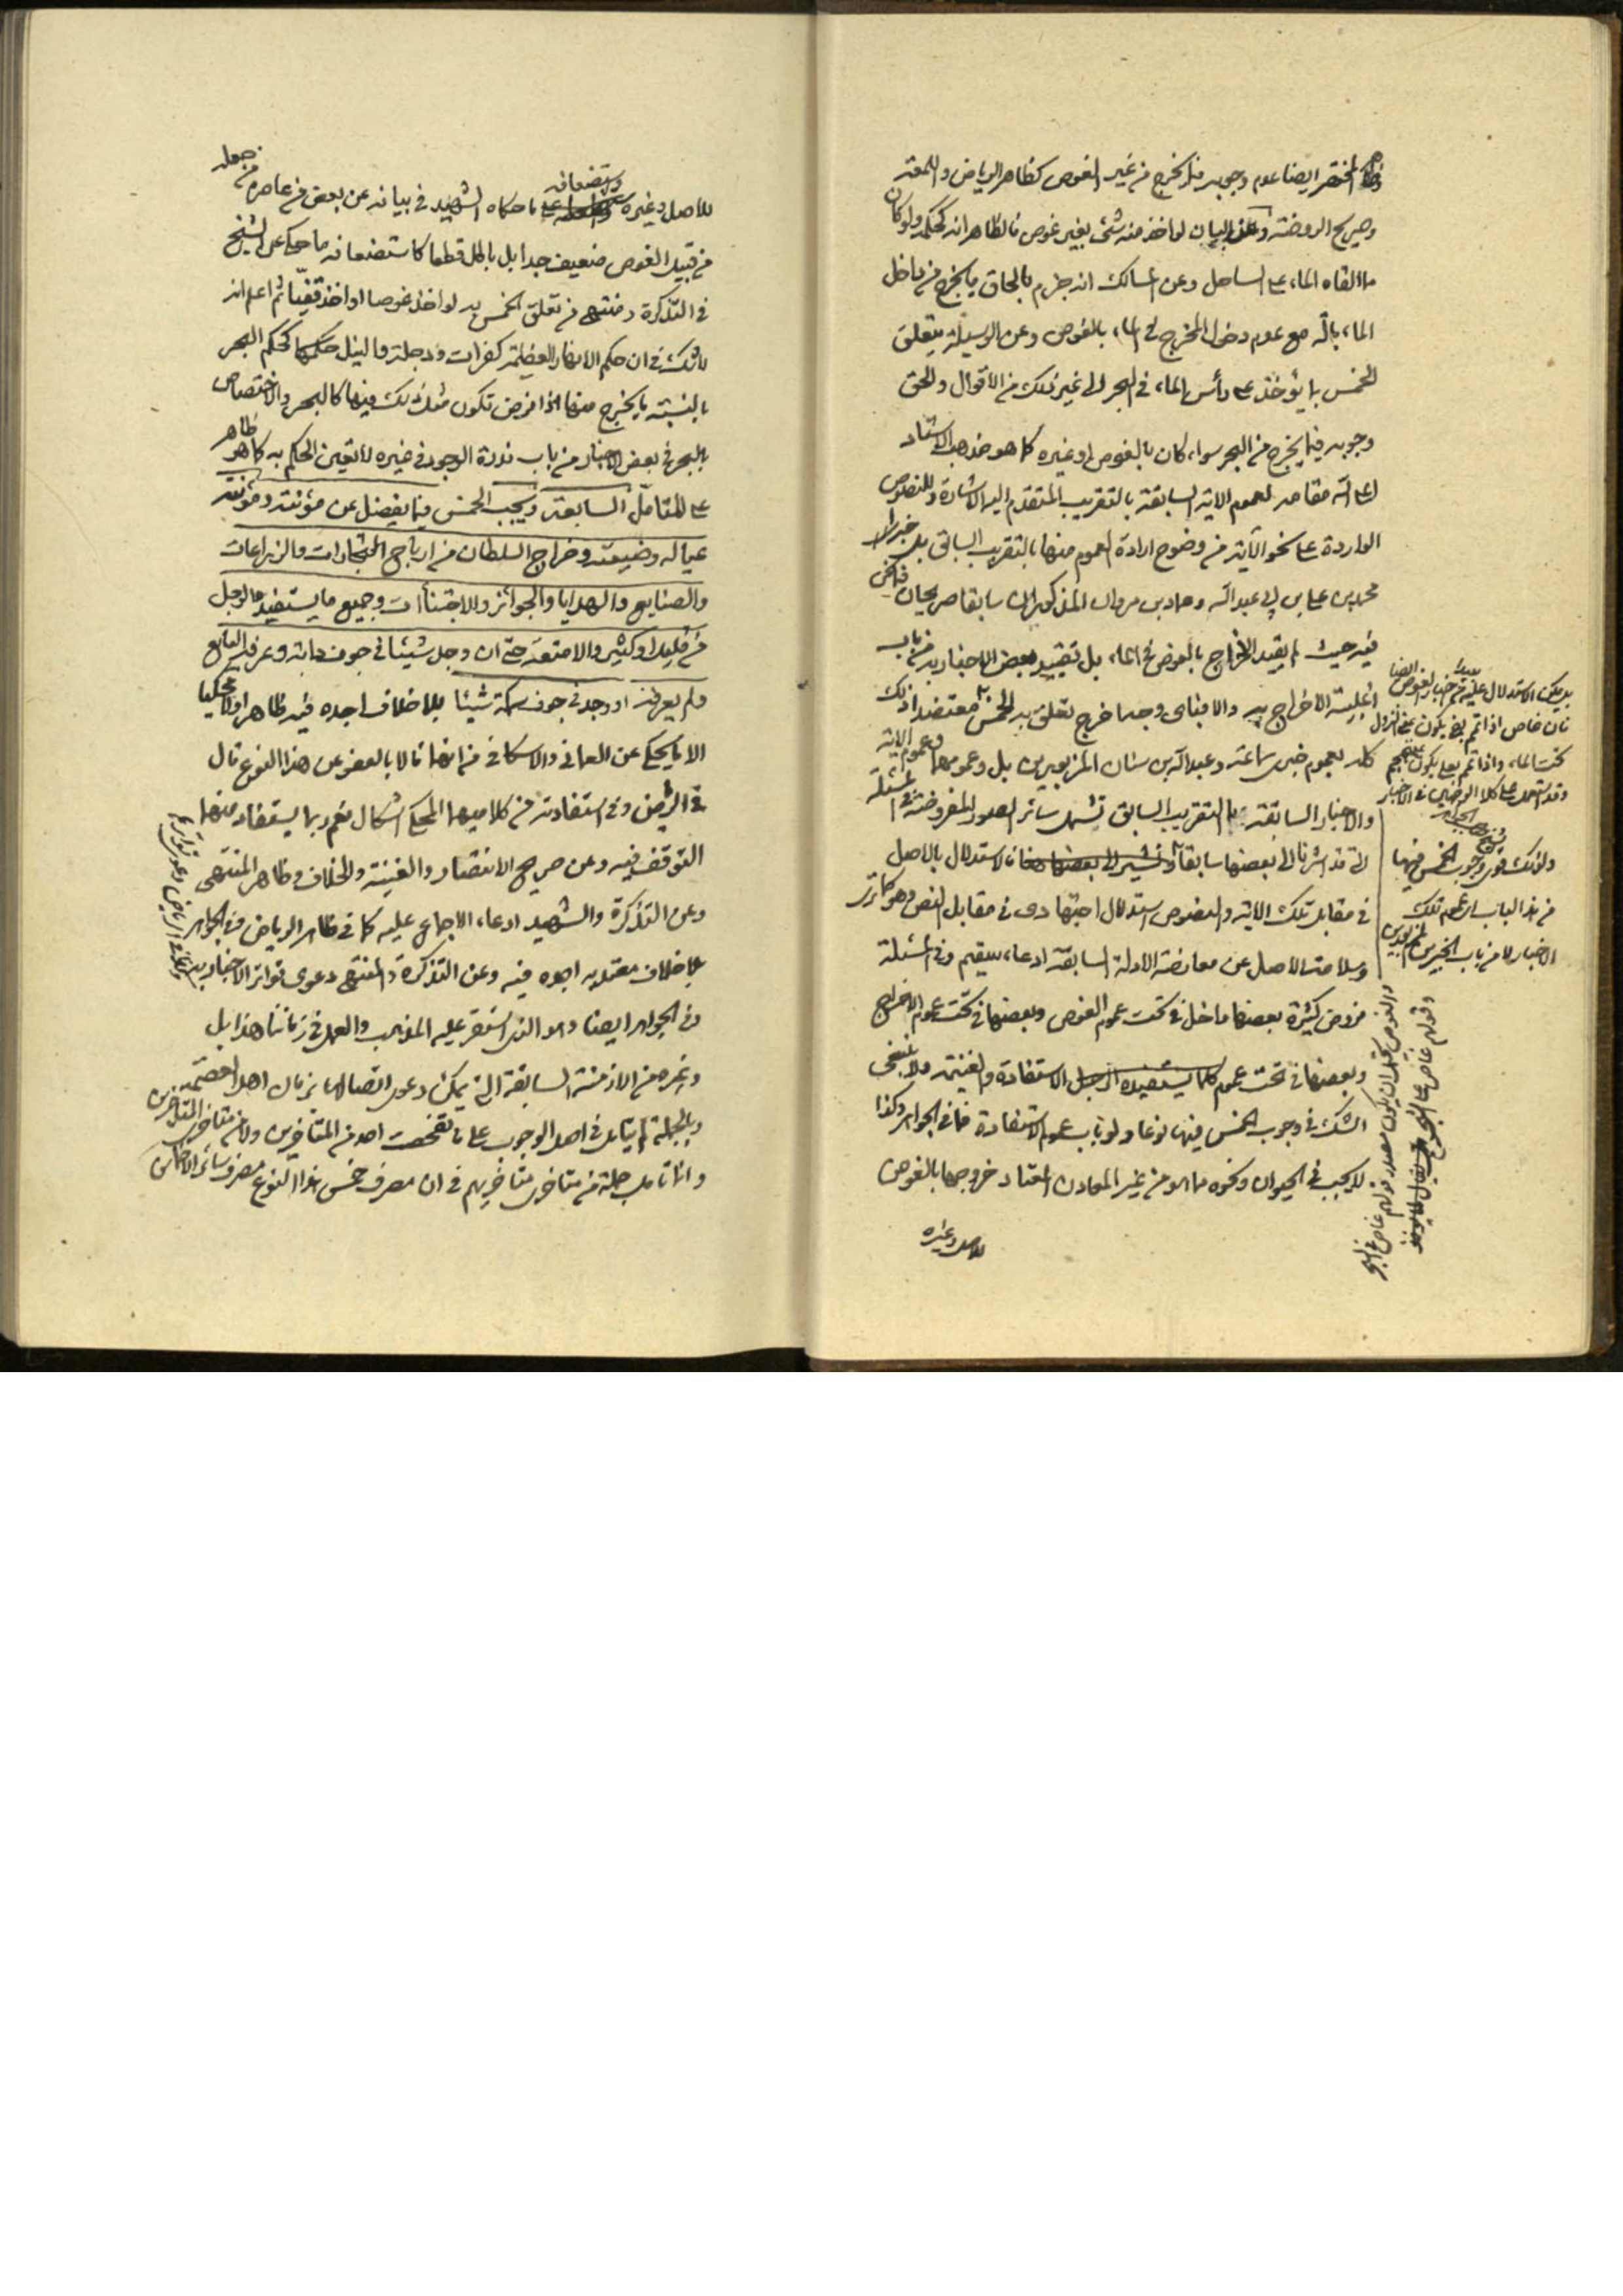 المختصر ايضا عدم وجوبه فيما يخرج من غير الغوص كظاهر الرياض واللمعة
وصريح الروضة وعن البيان لو اخذ منه شئ بغير غوص فالظاهر انه كحكمه ولو كان
مما القاه الماء على الساحل وعن المسالك انه جزم بالحاق ما يخرج من داخل
الماء بآلة مع عدم دخول المخرج في الماء بالغوص وعن الوسيلة يتعلق
الخمس بما يؤخذ على رأس الماء في البحر الى غير ذلك من الأقوال والحق
وجوبه فيما يخرج من البحر سواء كان بالغوص او غيره كما هو مذهب الاستاد
اعلى الله مقامه لعموم الاية السابقة بالتقريب المتقدم اليه الاشارة وللنصوص
الواردة على نحو الآية من وضوح ارادة العموم منها بالتقريب السابق بل خبر
محمد بن علي بن ابي عبد الله وعمار بن مروان المذكوران سابقا صريحان فيما نحن
فيه حيث لم يقيد الاخراج بالغوص في الماء بل تقييد بعض الاخبار به من باب
اغلبية الاخراج به والا فباى وجه اخرج تعلق به الخمس معتضدا ذلك
كله بعموم خبرى سماعة وعبد الله بن سنان المزبورين بل وعموم الاية
والاخبار السابقة بالتقريب السابق تشمل سائر الصور المفروضة في المسئلة
التي قد اشرنا الى بعضها سابقا فالاستدلال بالاصل
في مقابل تلك الاية والنصوص استدلال اجتهادى في مقابل النص وهو كما ترى
وسلامة الاصل عن معارضة الادلة السابقة ادعاء سقيم وفي المسئلة
فروض كثيرة بعضها داخل في تحت عموم الغوص وبعضها في تحت عموم الاخراج
وبعضها في تحت عموم الاستفادة والغنيمة ولا ينبغى
الشك في وجوب الخمس فيها نوعا ولو باب عموم الاستفادة فما في الجواهر وكذا
لا يجب في الحيوان ونحوه مما هو من غير المعادن المعتاد خروجها بالغوص
للاصل وغيره
بل يمكن الاستدلال عليه من اخبار الغوص ايضا
فان غاص اذا تم بفي يكون بمعنى نزل
تحت الماء واذا تم بعلى يكون بمعنى هجم
وقد استعمل على كلا الوجهين في الاخبار
ولذلك قوى وجوب الخمس فيها
من هذا الباب اى عموم تلك
الاخبار لا من باب الخبرين المزبورين
والغوص يحتمل ان يكون مصدر قولهم غاص في البحر
وقولهم غاص على الشئ
للاصل وغيره ويستضعفانه ما حكاه الشهيد في بيانه عن بعض من عاصره من جعله
من قبيل الغوص ضعيف جدا بل باطل قطعا كاستضعافه ما حكى عن الشيخ
في التذكرة ومنتهى من تعلق الخمس به لو اخذ غوصا او اخذ قفيا ثم اعلم انه
لا شك في ان حكم الانهار العظيمة كفرات ودجلة والنيل كحكم البحر
بالنسبة لما يخرج منها اذا فرض تكون مثل ذلك فيها كالبحر والاختصاص
بالبحر في بعض الاخبار من باب ندرة الوجود في غيره لا تعين الحكم به كما هو ظاهر
على المتامل السابعة ويجب الخمس فيما يفضل عن مؤنته ومؤنة
عياله وضيعته وخراج السلطان من ارباح التجارات والزراعات
والصنايع والهدايا والجوائز والاجتناآت وجميع ما يستفيده الرجل
من قليل او كثير والامتعة حتى ان وجد شيئا في جوف دابة وعرفه البايع
ولم يعرفه او وجد في جوف سمكة شيئا بلا خلاف اجده فيه ظاهرا ومحكيا
الا ما يحكى عن العماني والاسكافي من انهما قالا بالعفو عن هذا النوع قال
في الرياض وفي استفادته من كلاميهما المحكي اشكال نعم ربما يستفاد منهما
التوقف فيه وعن صريح الانتصار والغنية والخلاف وظاهر المنتهى
وعن التذكرة والشهيد ادعاء الاجماع عليه كما في ظاهر الرياض وفي الجواهر
بلا خلاف معتد به اجده فيه وعن التذكرة والمنتهى دعوى تواتر الاخبار به
وفي الجواهر ايضا وهو الذى استقر عليه المذهب والعمل في زماننا هذا بل
وغيره من الازمنة السابقة التي يمكن دعوى اتصالها بزمان اهل العصمة
وبالجملة لم يتامل في اصل الوجوب على ما تفحصت احد من المتاخرين ولا من متاخرى المتاخرين
وانما تامل جملة من متاخرى متاخريهم في ان مصرف خمس هذا النوع مصرف سائر الاخماس